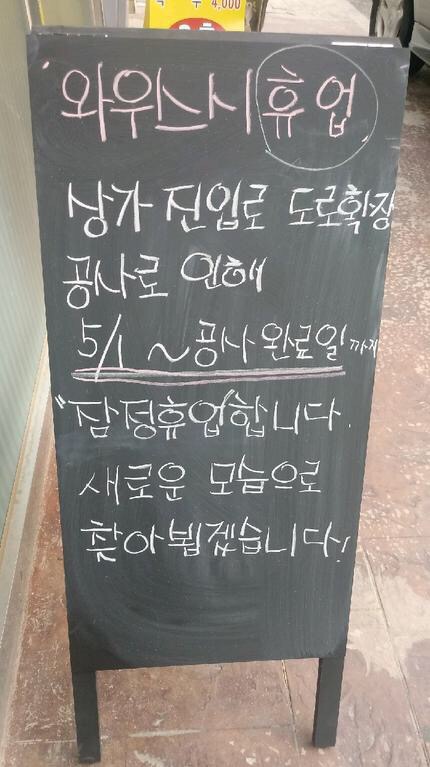 4,000
와우스시 휴업
상가 진입로 도로확장
공사로 인해
5/1 ~ 공사 완료일 까지
잠정휴업합니다.
새로운 모습으로
찾아뵙겠습니다!